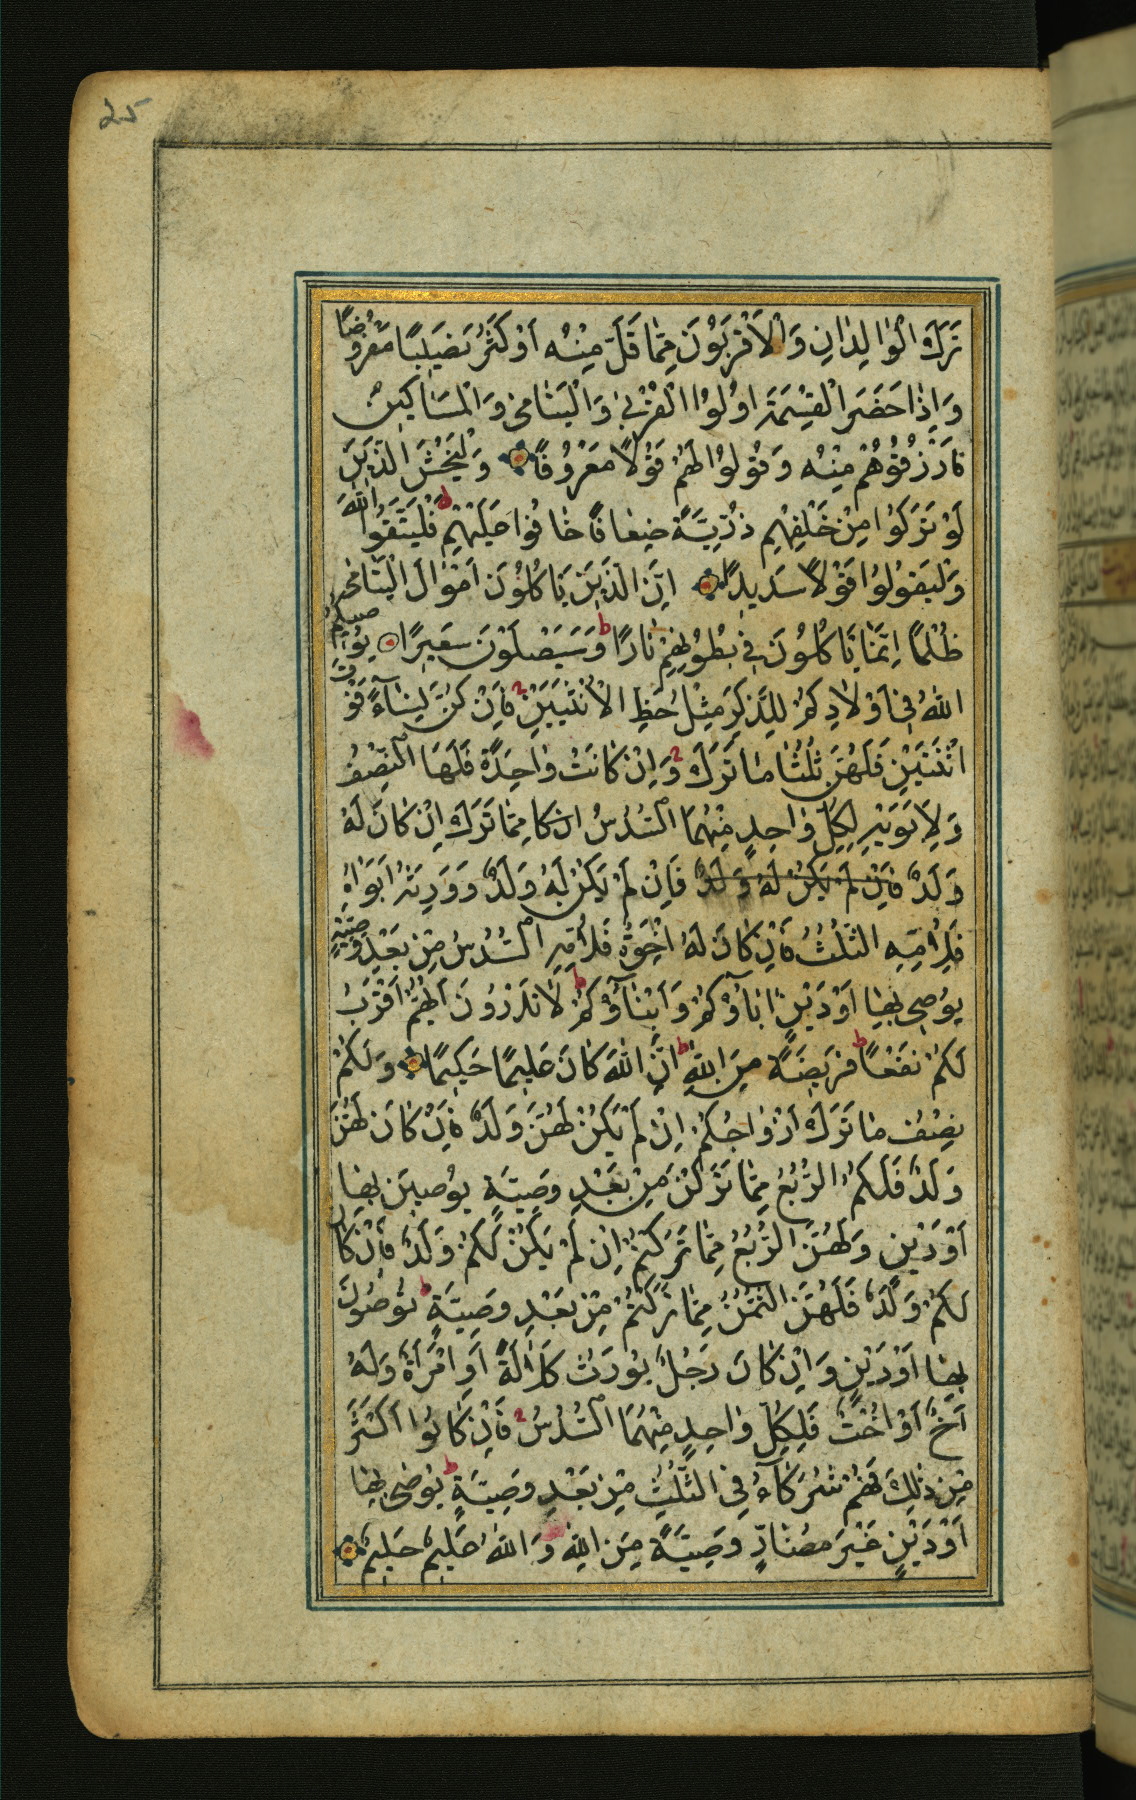 25
تَرَكَ الْوٰالِدٰانِ وَالْاَقْرَبُونَ مِمّٰا قَلَّ مِنْهُ اَوْ كَثُرَ نَصٖيبًا مَفْرُوضًا
وَاِذٰا حَضَرَ الْقِسْمَةَ اوُلُوا الْقُرْبىٰ وَالْيَتٰامىٰ وَالْمَسٰاكٖينُ
فَارْزُقُوهُمْ مِنْهُ وَقُولُوا لَهُمْ قَوْلًا مَعْرُوفًا وَلْيَخْشَ الَّذٖينَ
لَوْ تَرَكُوا مِنْ خَلْفِهِمْ ذُرِّيَّةً ضِعٰافًا خٰافُوا عَلَيْهِمْ ط فَلْيَتَّقُوا اللّٰهَ
وَلْيَقُولُوا قَوْلًا سَدٖيدًا اِنَّ الَّذٖينَ يَاكُلُونَ اَمْوٰالَ الْيَتٰامىٰ
ظُلْمًا اِنَّمٰا يَاكُلُونَ فٖي بُطُونِهِمْ نٰارًا ط وَسَيَصْلَوْنَ سَعٖيرًا يُوصٖيكُمُ
اللّٰهُ فٖي اَوْلٰادِكُمْ لِلذَّكَرِ مِثْلُ حَظِّ الْاُنْثَيَيْنِ فَاِنْ كُنَّ نِسٰآءً فَوْقَ
اثْنَتَيْنِ فَلَهُنَّ ثُلُثٰا مٰا تَرَكَ وَاِنْ كٰانَتْ وٰاحِدَةً فَلَهَا النِّصْفُ
وَلِاَبَوَيْهِ لِكُلِّ وٰاحِدٍ مِنْهُمَا السُّدُسُ ان كا مِمّٰا تَرَكَ اِنْ كٰانَ لَهُ
وَلَدٌ فَاِنْ لَمْ يَكُنْ لَهُ وَلَدٌ فَاِنْ لَمْ يَكُنْ لَهُ وَلَدٌ وَوَرِثَهُ اَبَوٰاهُ
فَلِاُمِّهِ الثُّلُثُ فَاِنْ كٰانَ لَهُ اِخْوَةٌ فَلِاُمِّهِ السُّدُسُ مِنْ بَعْدِ وَصِيَّةٍ
يُوصٖي بِهٰا اَوْ دَيْنٍ اٰبٰاؤُكُمْ وَاَبْنٰآؤُكُمْ ط لٰا تَدْرُونَ اَيُّهُمْ اَقْرَبُ
لَكُمْ نَفْعًا ط فَرٖيضَةً مِنَ اللّٰهِ ط اِنَّ اللّٰهَ كٰانَ عَلٖيمًا حَكٖيمًا وَلَكُمْ
نِصْفُ مٰا تَرَكَ اَزْوٰاجُكُمْ اِنْ لَمْ يَكُنْ لَهُنَّ وَلَدٌ فَاِنْ كٰانَ لَهُنَّ
وَلَدٌ فَلَكُمُ الرُّبُعُ مِمّٰا تَرَكْنَ مِنْ بَعْدِ وَصِيَّةٍ يُوصٖينَ بِهٰا
اَوْ دَيْنٍ وَلَهُنَّ الرُّبُعُ مِمّٰا تَرَكْتُمْ اِنْ لَمْ يَكُنْ لَكُمْ وَلَدٌ فَاِنْ كٰانَ
لَكُمْ وَلَدٌ فَلَهُنَّ الثُّمُنُ مِمّٰا تَرَكْتُمْ مِنْ بَعْدِ وَصِيَّةٍ ط تُوصُونَ
بِهٰا اَوْ دَيْنٍ وَاِنْ كٰانَ رَجُلٌ يُورَثُ كَلٰالَةً اَوِ امْرَاَةٌ وَلَهُ
اَخٌ اَوْ اُخْتٌ فَلِكُلِّ وٰاحِدٍ مِنْهُمَا السُّدُسُ فَاِنْ كٰانُوا اَكْثَرَ
مِنْ ذٰلِكَ فَهُمْ شُرَكٰآءُ فِي الثُّلُثِ مِنْ بَعْدِ وَصِيَّةٍ ط يُوصٰى بِهٰا
اَوْ دَيْنٍ غَيْرَ مُضٰارٍّ وَصِيَّةً مِنَ اللّٰهِ وَاللّٰهُ عَلٖيمٌ حَلٖيمٌ